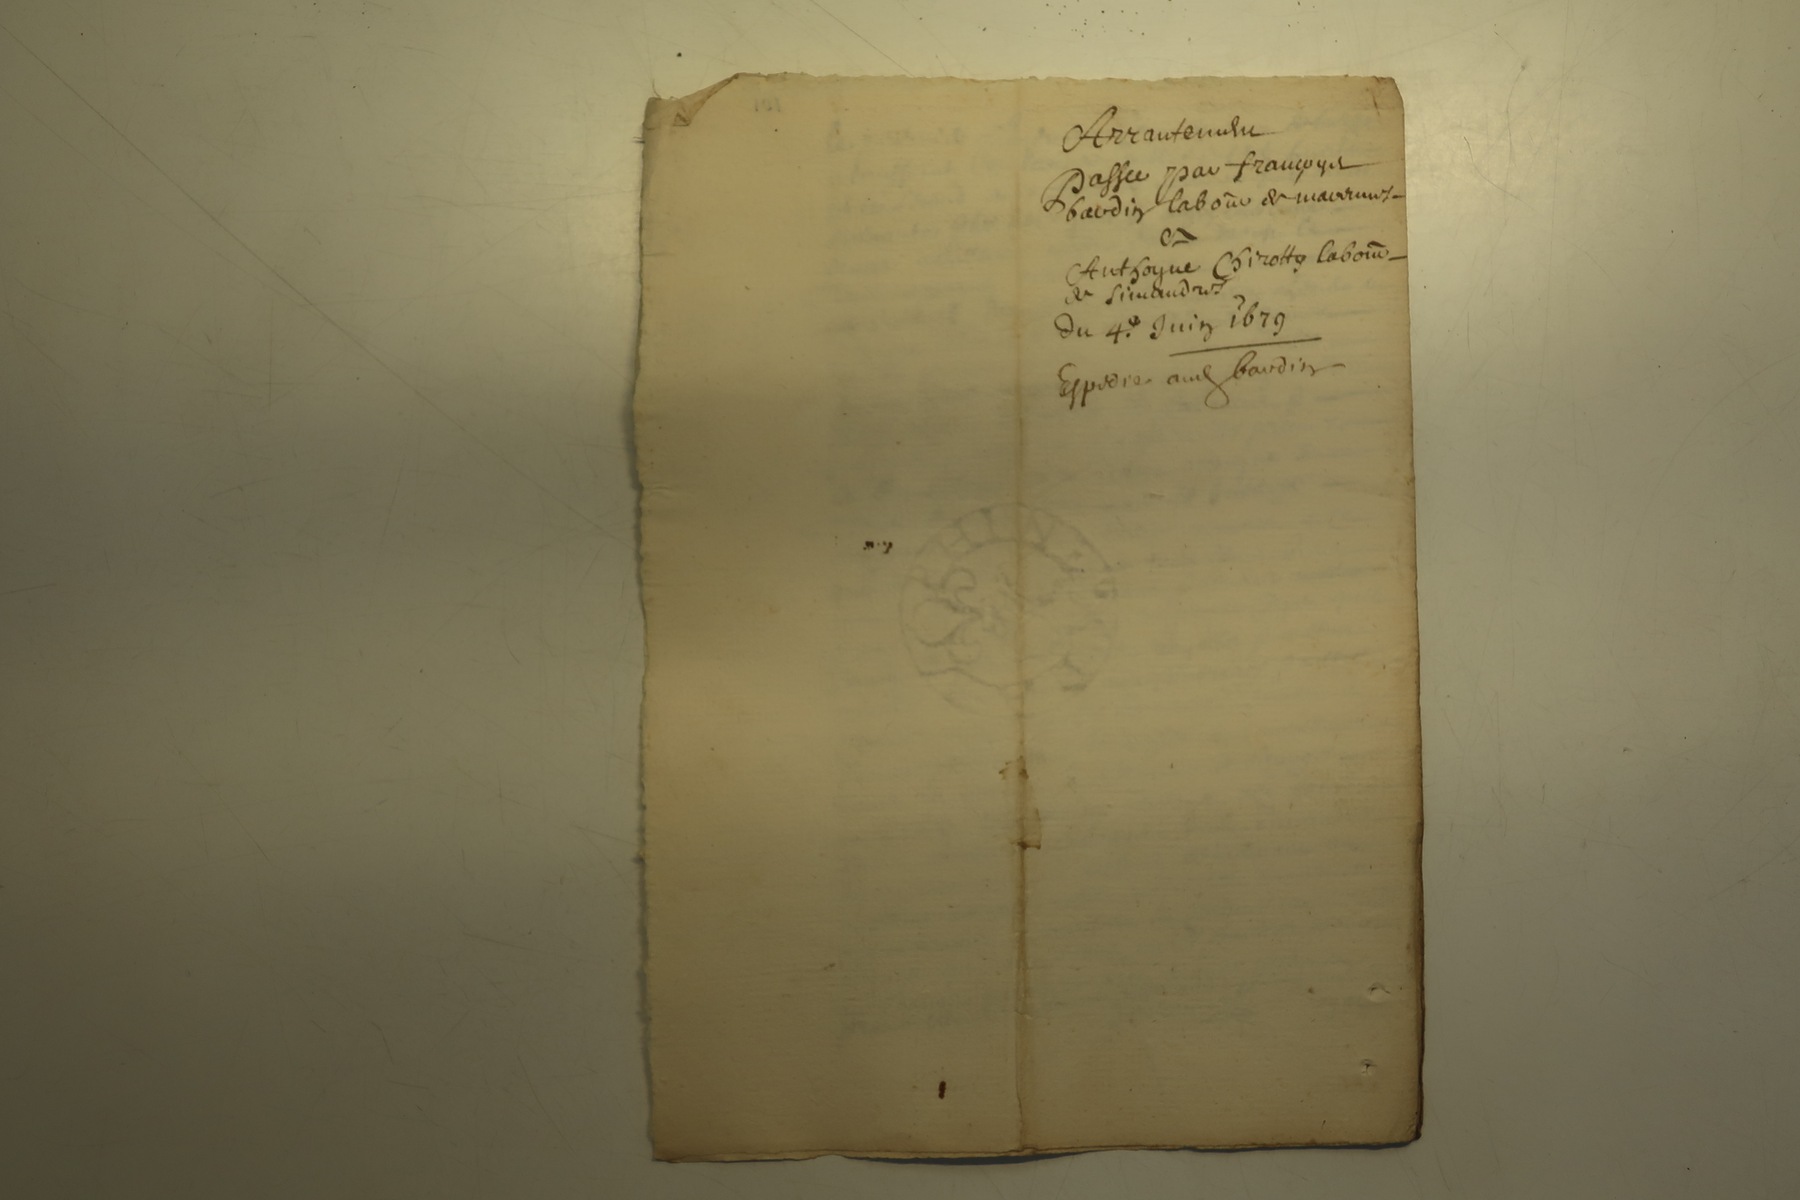 Arrantemen
Passee par françoys
bardin labou͞r de
A
Anthoyne Chirotty labou͞r
de Simandres
du 4e Juin 1679
Expedié aud bardin